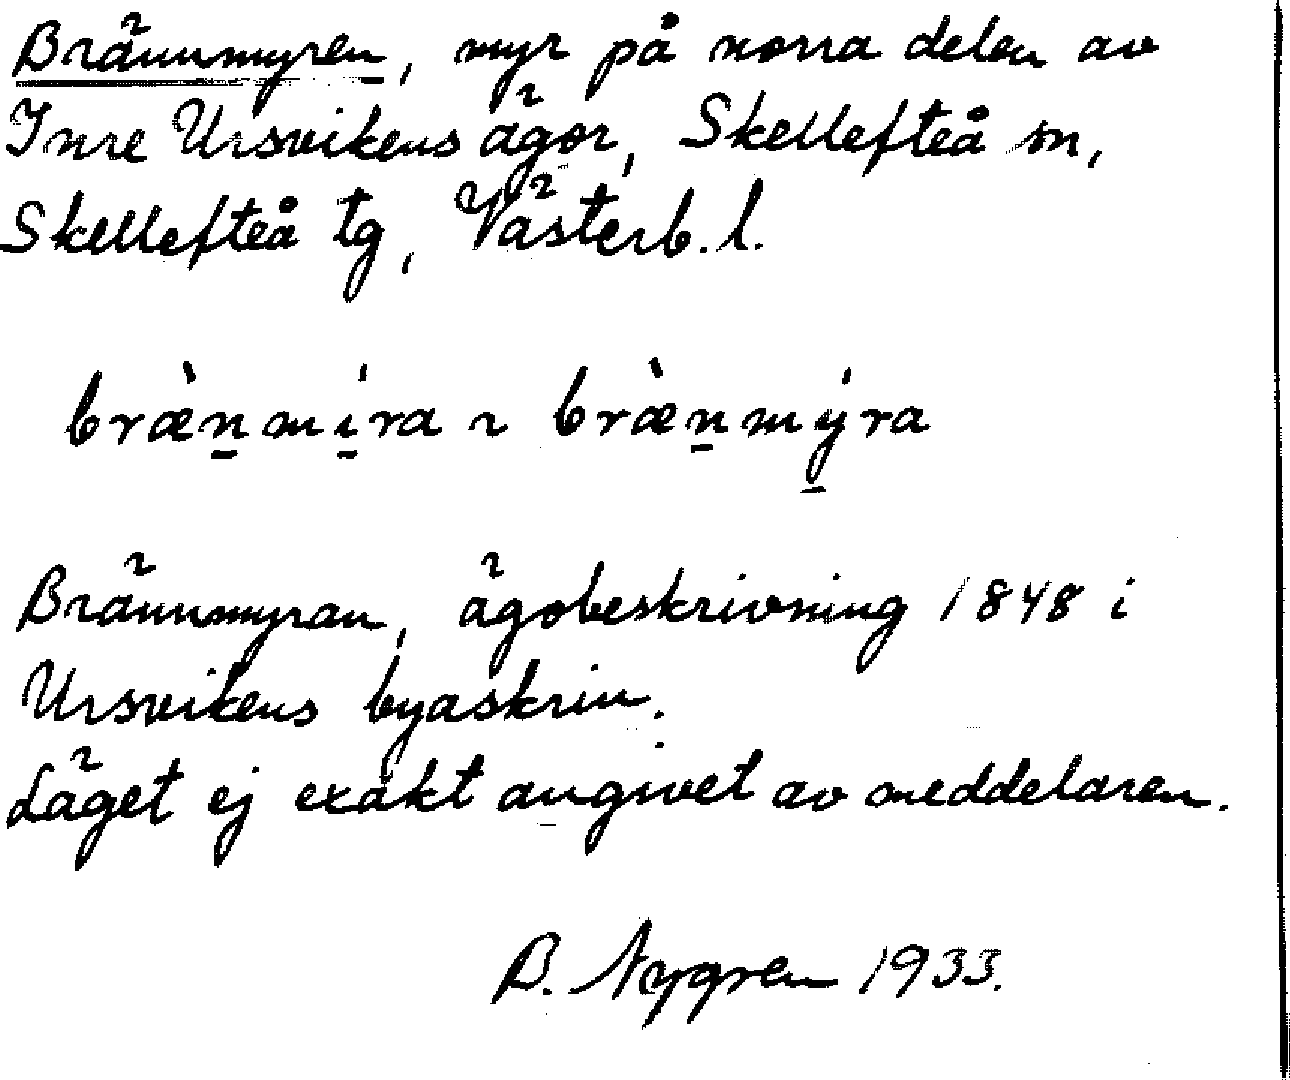 Brännmyren, myr på norra delen av
Inre Ursvikens ägor, Skellefteå sn,
Skellefteå tg, Västerb. l.
bræ̀n̲mí̲ra ~ bræ̀n̲mý̲ra
Brännmyran, ägobeskrivning 1848 i
Ursvikens byaskrin.
Läget ej exakt angivet av meddelaren.
B. Nygren 1933.